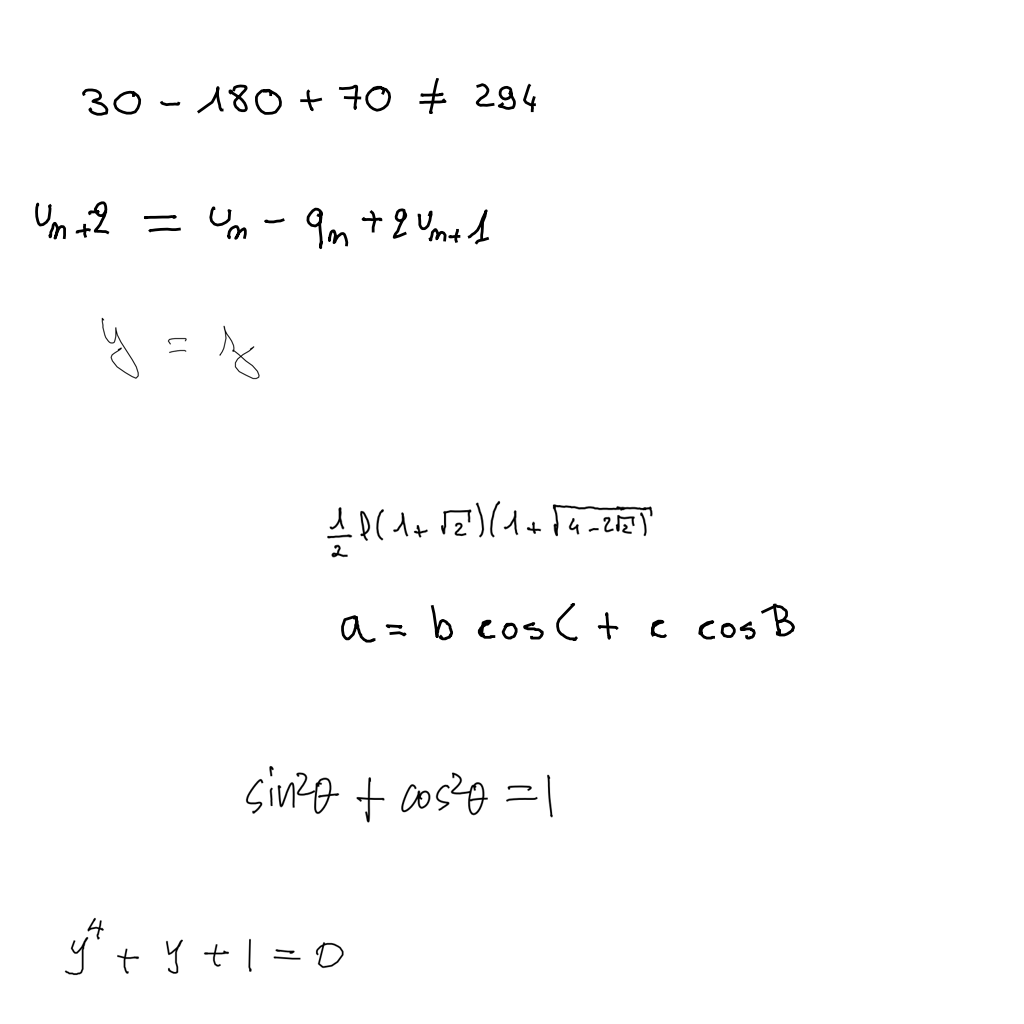 30 - 180 + 70 ≠ 294
u_{n+2} = u_n - q_n + 2u_{n+1}
y = z
\frac{1}{2} l(1+\sqrt{2})(1+\sqrt{4-2\sqrt{2}})
a = b cos C + c cos B
sin²θ + cos²θ = 1
y⁴ + y + 1 = 0